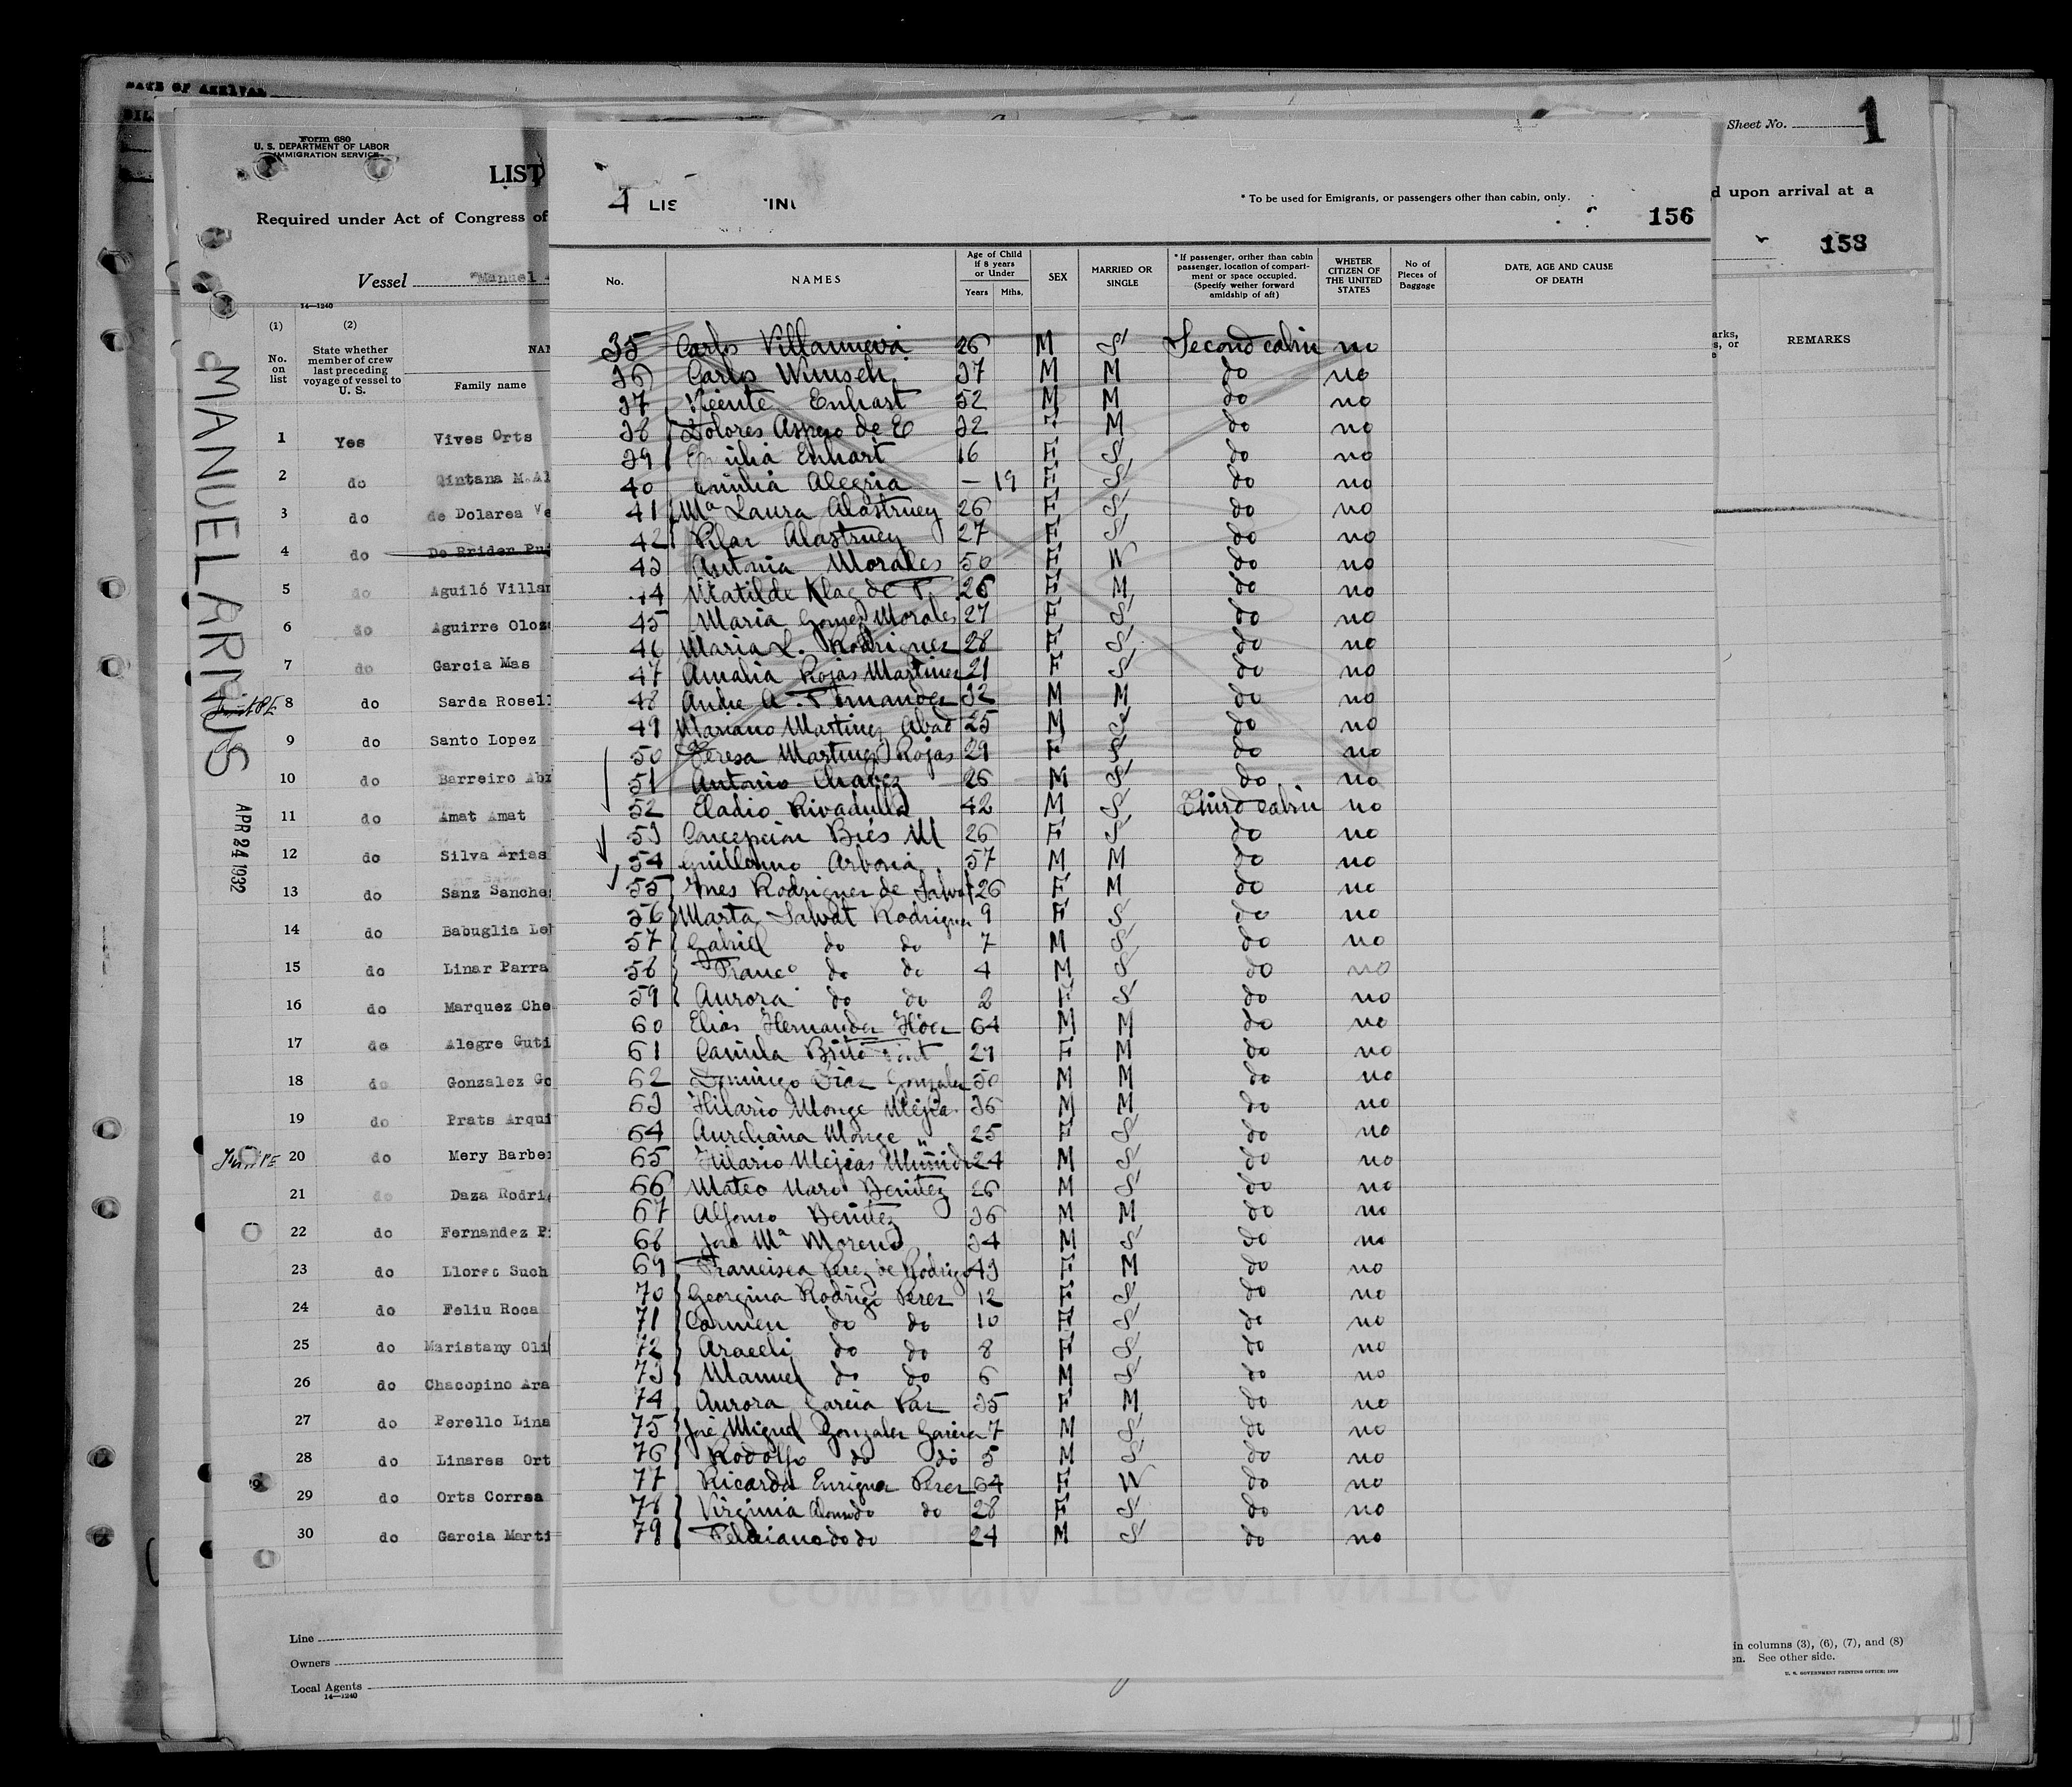 DATE OF ARRIVAL
Form 680
U. S. DEPARTMENT OF LABOR
IMMIGRATION SERVICE
LIST
Required under Act of Congress of
Vessel "Manuel
14—1240
(1) (2)
No. on list
State whether member of crew last preceding voyage of vessel to U. S.
NAM
Family name
1 Yes Vives Orts
2 do Qintana M.Al
3 do de Dolarea Ve
4 do De Rrider Pu
5 do Aguiló Villar
6 do Aguirre Oloz
7 do Garcia Mas
8 do Sarda Rosell
9 do Santo Lopez
10 do Barreiro Abz
11 do Amat Amat
12 do Silva Arias
13 do Sanz Sanche
14 do Babuglia Le
15 do Linar Parra
16 do Marquez Che
17 do Alegre Guti
18 do Gonzalez Go
19 do Prats Arqui
20 do Mery Barber
21 do Daza Rodri
22 do Fernandez P
23 do Llorec Such
24 do Feliu Roca
25 do Maristany Oli
26 do Chacopino Ara
27 do Perello Lina
28 do Linares Ort
29 do Orts Correa
30 do Garcia Marti
Line
Owners
Local Agents
14—1240
MANUEL ARNUS
APR 24 1932
4 LIS
* To be used for Emigrants, or passengers other than cabin, only.
156
No.
NAMES
Age of Child if 8 years or Under
Years Mths.
SEX
MARRIED OR SINGLE
* If passenger, orther than cabin passenger, location of compartment or space occupied. (Specify wether forward amidship of aft)
WHETER CITIZEN OF THE UNITED STATES
No of Pieces of Baggage
DATE, AGE AND CAUSE OF DEATH
35 Carlos Villanueva 26 M S Second cabin no
36 Carlos Wunsch 37 M M do no
37 Vicente Enhart 52 M M do no
38 Dolores Aspero de E 32 M do no
39 Emilia Enhart 16 F S do no
40 Emilia Alegria — 19 F S do no
41 Mª Laura Alastruey 26 F S do no
42 Pilar Alastruey 27 F S do no
43 Antonia Morales 50 F W do no
44 Matilde Klag de F. 26 F M do no
45 Maria Gomez Morales 27 F S do no
46 Maria L. Rodriguez 28 F S do no
47 Amalia Rojas Martinez 21 F S do no
48 Andre A. Fernandez 32 M M do no
49 Mariano Martinez Abad 25 M S do no
50 Teresa Martinez Rojas 29 F S do no
51 Antonio Chavez 26 M S do no
52 Eladio Rivadulla 42 M S Third cabin no
53 Concepcion Bies M 26 F S do no
54 Guillermo Arbona 57 M M do no
55 Ynes Rodriguez de Salvat 26 F M do no
56 Marta Salvat Rodriguez 9 F S do no
57 Gabriel do do 7 M S do no
58 Francº do do 4 M S do no
59 Aurora do do 2 F S do no
60 Elias Hernandez 64 M M do no
61 Camila Brito 29 F M do no
62 Domingo Diaz Gonzalez 50 M M do no
63 Hilario Monge Mejia 36 M M do no
64 Aureliana Monge " 25 F S do no
65 Hilario Mejias 24 M S do no
66 Mateo Haro Benitez 26 M S do no
67 Alfonso Benitez 36 M M do no
68 José Mª Moreno 34 M S do no
69 Francisca Perez de Rodrigo 43 F M do no
70 Georgina Rodrigo Perez 12 F S do no
71 Carmen do do 10 F S do no
72 Araceli do do 8 F S do no
73 Manuel do do 6 M S do no
74 Aurora Garcia Paz 35 F M do no
75 José Miguel Gonzalez Garcia 7 M S do no
76 Rodolfo do do 5 M S do no
77 Ricarda Enriquez Perez 64 F W do no
78 Virginia Alonso do do 28 F S do no
79 Feliciano do do 24 M S do no
COMPAÑIA TRASATLÁNTICA
Sheet No. 1
d upon arrival at a
158
REMARKS
in columns (3), (6), (7), and (8)
en. See other side.
U. S. GOVERNMENT PRINTING OFFICE: 1929